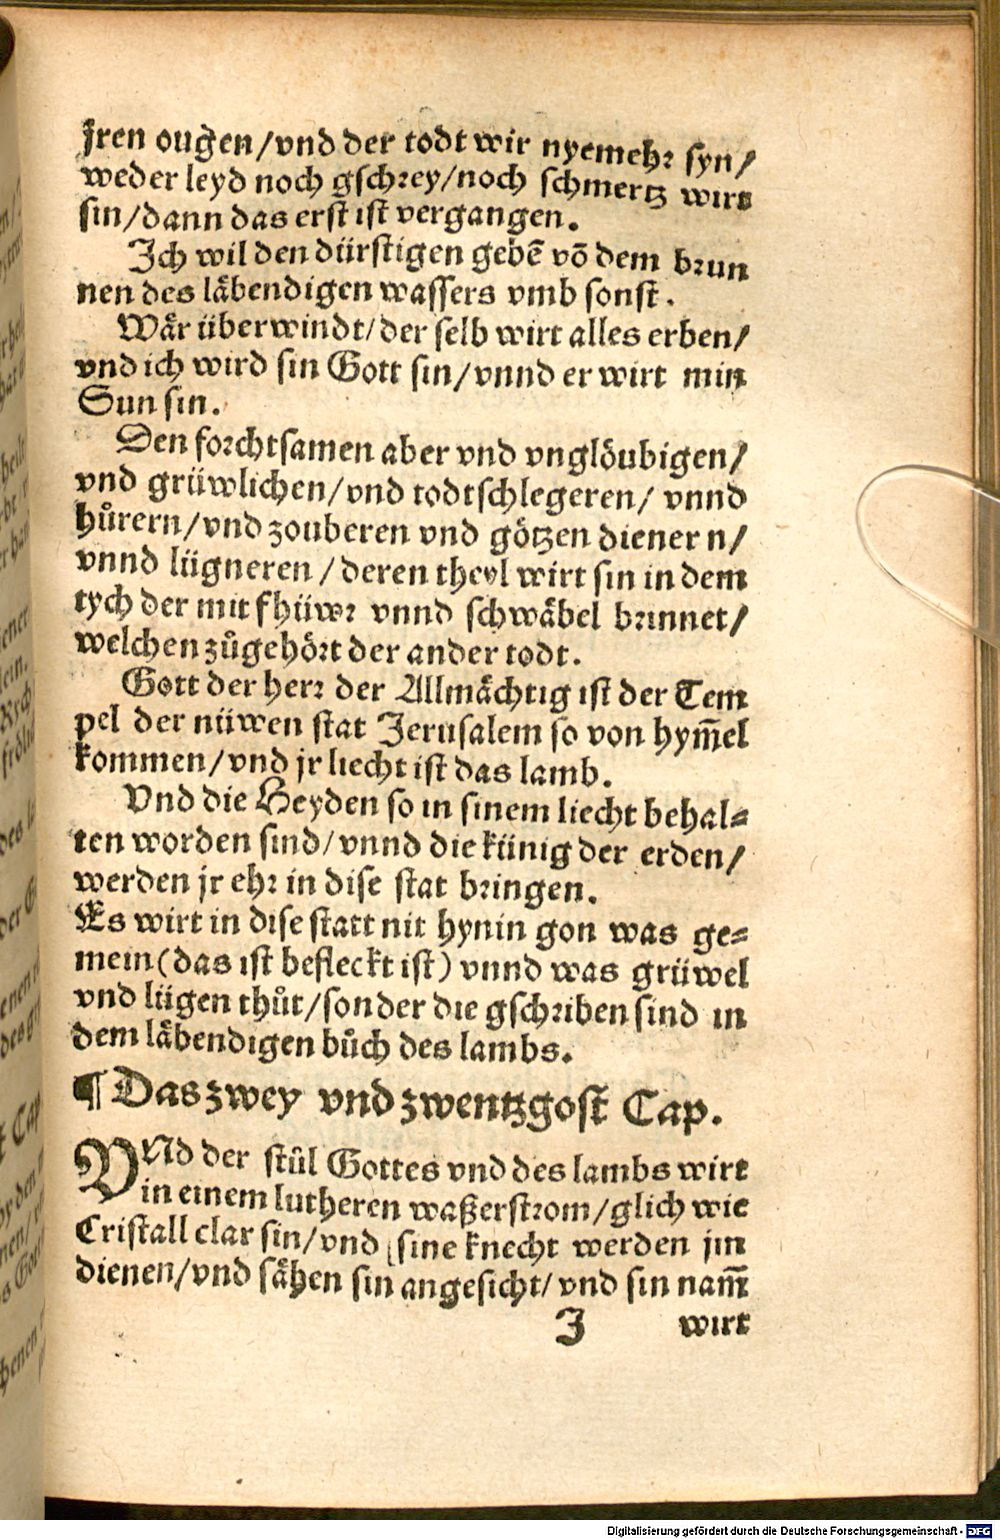 Jren ougen/vnd der todt wir nyemehr syn/
weder leyd noch gschrey/noch schmertz wirt
sin/dann das erst ist vergangen.
Jch wil den dürstigen gebē vō dem brun
nen des läbendigen wassers vmb sonst.
Wär überwindt/der selb wirt alles erben/
vnd ich wird sin Gott sin/vnnd er wirt min
Sun sin.
Den forchtsamen aber vnd vnglöubigen/
vnd grüwlichen/vnd todtschlegeren/ vnnd
hůrern/vnd zouberen vnd götzen dienern/
vnnd lügneren/deren theyl wirt sin in dem
tych der mit fhüwr vnnd schwäbel brinnet/
welchen zůgehört der ander todt.
Gott der herr der Allmächtig ist der Tem
pel der nüwen stat Jerusalem so von hym̄el
kommen/vnd jr liecht ist das lamb.
Vnd die Heyden so in sinem liecht behal-
ten worden sind/vnnd die künig der erden/
werden jr ehr in dise stat bringen.
Es wirt in dise statt nit hynin gon was ge-
mein(das ist befleckt ist) vnnd was grüwel
vnd lügen thůt/sonder die gschriben sind in
dem läbendigen bůch des lambs.
¶ Das zwey vnd zwentzgost Cap.
VNd der stůl Gottes vnd des lambs wirt
in einem lutheren waßerstrom/glich wie
Cristall clar sin/vnd sine knecht werden jm
dienen/vnd sähen sin angesicht/vnd sin nam̄
J wirt
Digitalisierung gefördert durch die Deutsche Forschungsgemeinschaft - DFG